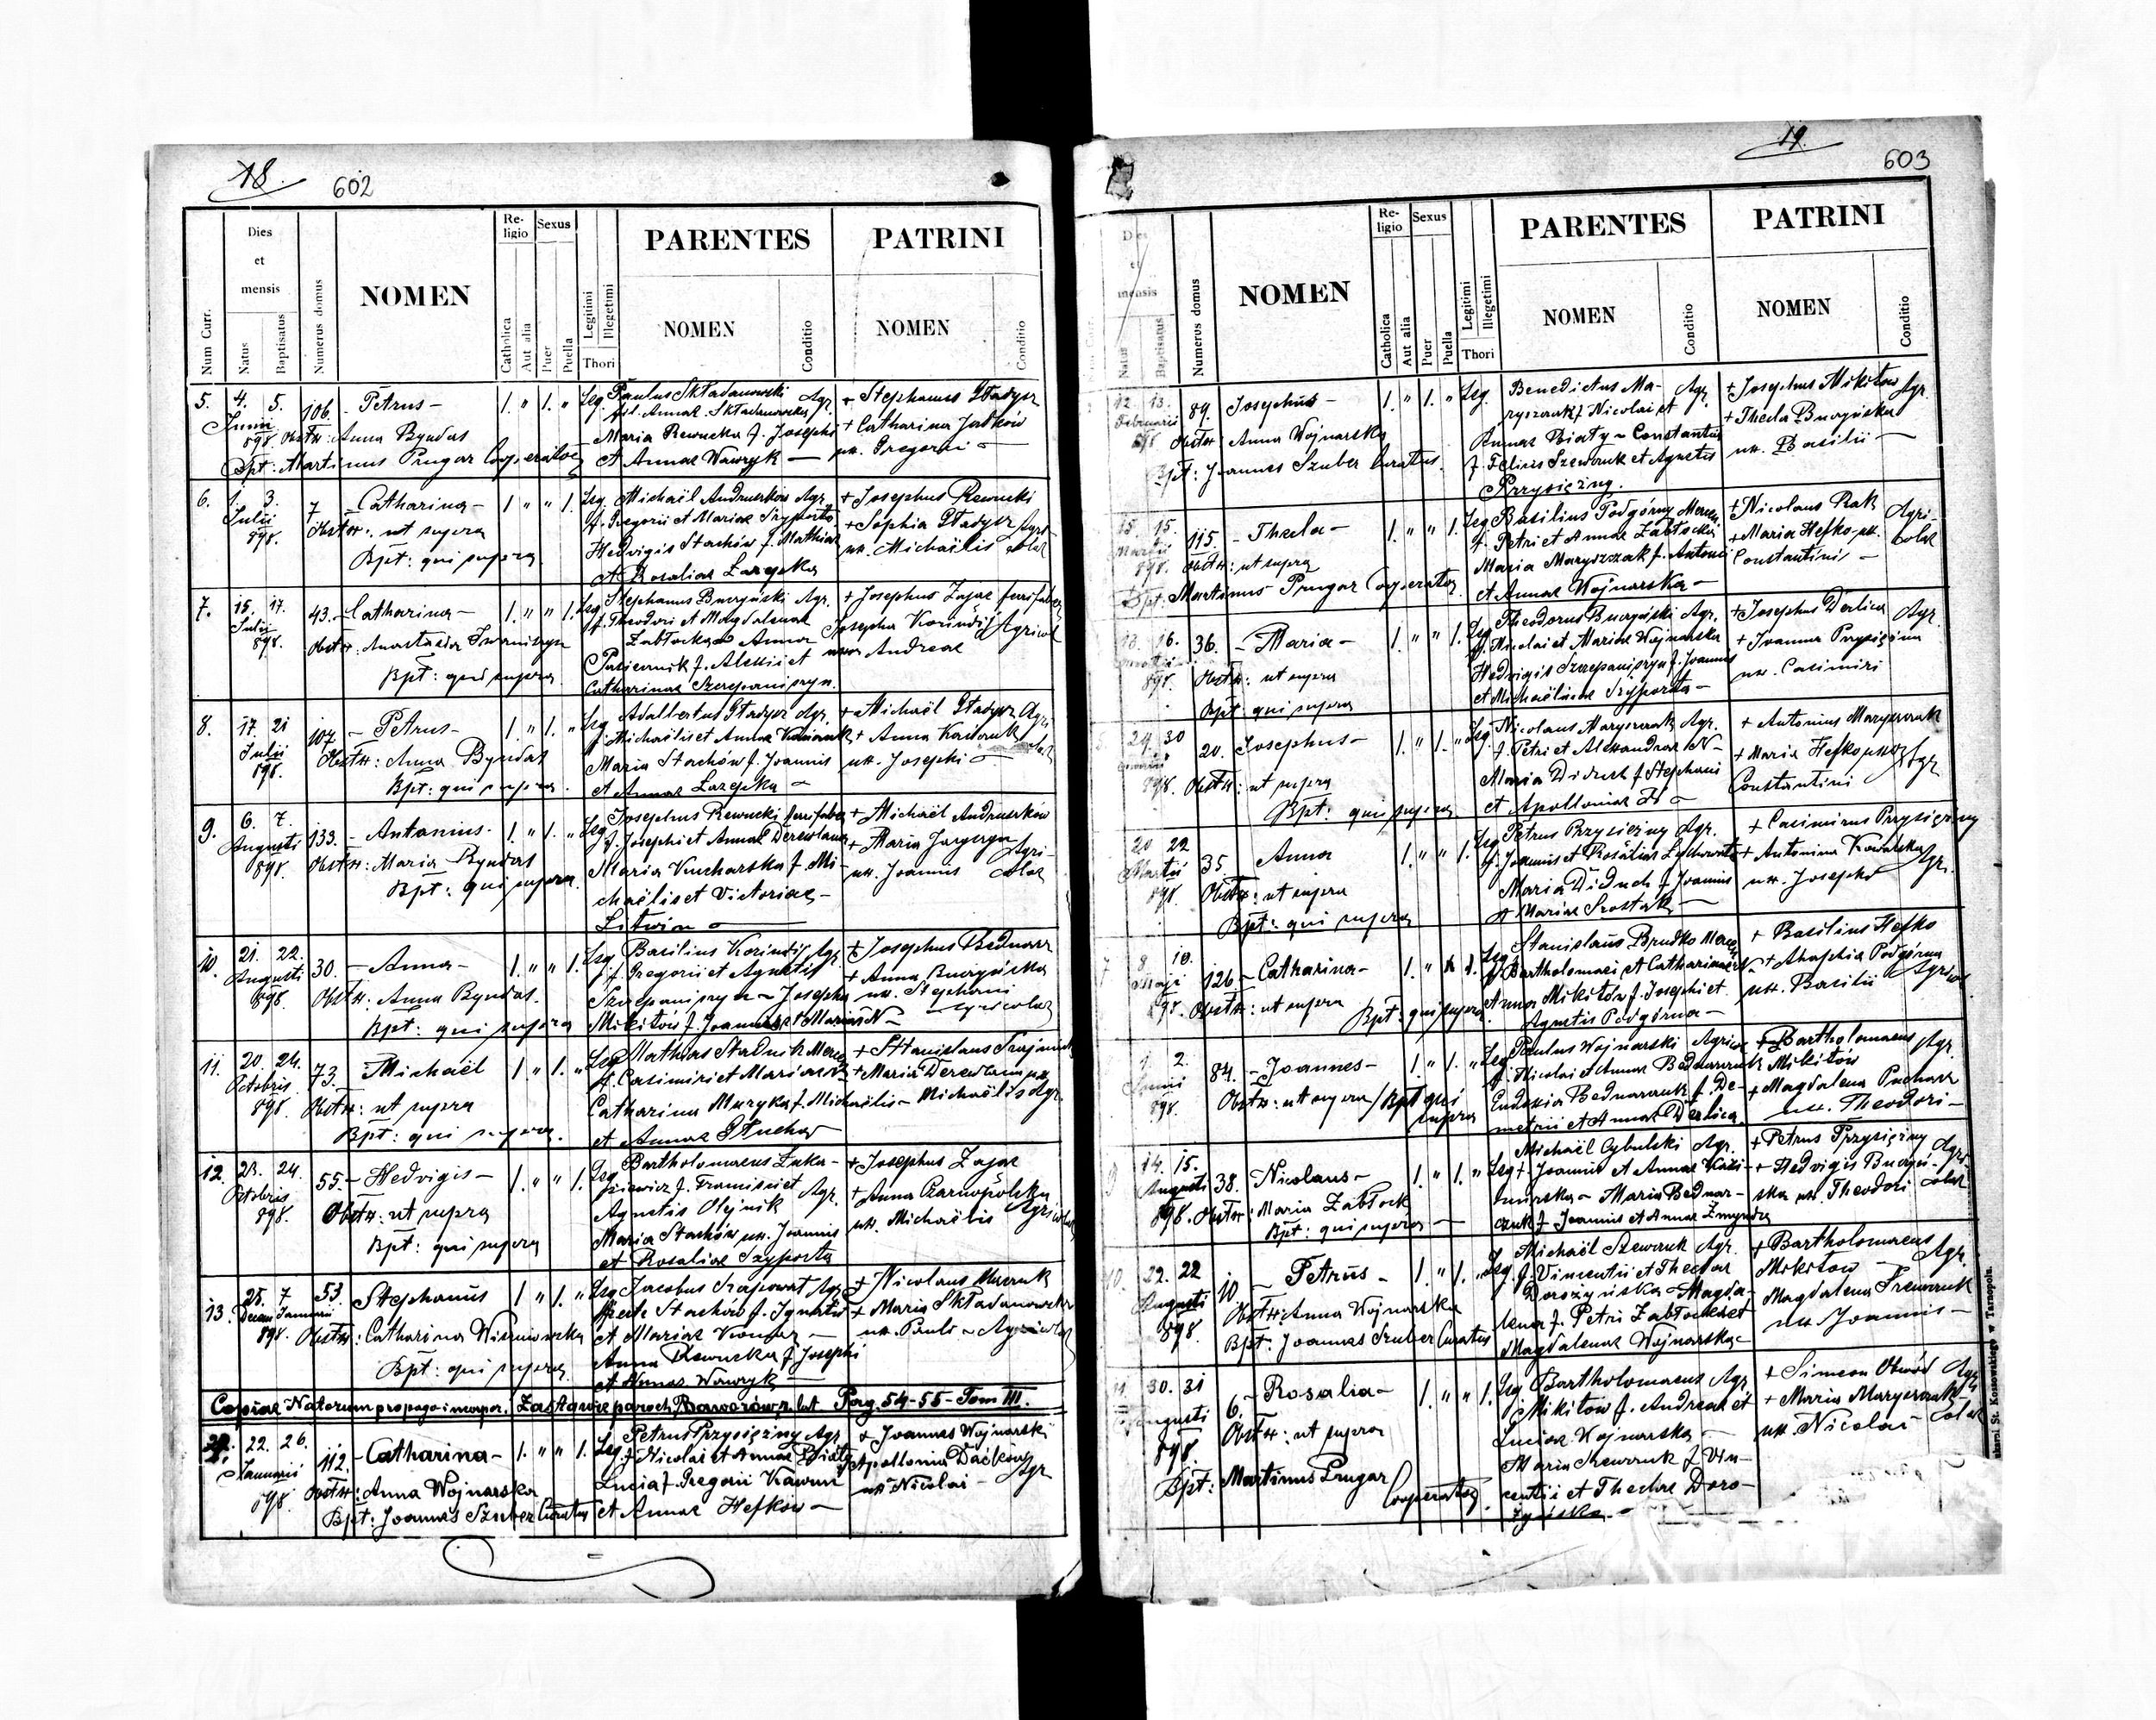 18. 602
Num Curr.
Dies et mensis
Natus
Baptisatus
Numerus domus
NOMEN
Religio
Catholica
Aut alia
Sexus
Puer
Puella
Legitimi
Illegetimi
Thori
PARENTES
NOMEN
Conditio
PATRINI
NOMEN
Conditio
5. 4. 5. 106. - Petrus - 1. " 1. " Leg. Paulus Składanowski Agr. + Stephanus Gładysz
Junii fil. Annae Składanowska + Catharina Jaćków
898. Obstx: Anna Byndas Maria Rewucka f. Josephi ux. Gregorii
Bpt: Martinus Prugar Cooperator et Annae Wawryk
6. 1. 3. 7 - Catharina - 1 " " 1. Leg. Michaël Andruerków Agr. + Josephus Rewucki
Julii f. Gregorii et Mariae Szyporta + Sophia Gładysz Agri-
898. Obstx: ut supra Hedvigis Stachów f. Mathiae ux. Michaëlis colae
Bpt: qui supra et Rosaliae
7. 15. 17. 43. - Catharina - 1. " " 1. Leg. Stephanus Buczyński Agr. + Josephus Zając
Julii f. Theodori et Magdalenae Josepha
898. Obstx: Anastasia Zabłocka Anna Andreae
Bpt: qui supra f. Alexii et
Catharinae Szczepaniszyn.
8. 17. 21 107 - Petrus - 1. " 1. " Leg. Adalbertus Gładysz Agr. + Michaël Gładysz Agri
Julii f. Michaëlis et Annae + Anna
898. Obstx: Anna Byndas Maria Stachów f. Joannis ux. Josephi
Bpt: qui supra. et Annae
9. 6. 7. 133. - Antonius - 1. " 1. " Leg. Josephus Rewucki + Michaël Andruerków
Augusti f. Josephi et Annae + Maria
898. Obstx: Maria Byndas Maria Kucharska f. Mi- ux. Joannis Agri-colae
Bpt: qui supra. chaëlis et Victoriae -
Litwin
10. 21. 22. 30. - Anna - 1. " " 1. Leg. Basilius Agr + Josephus Bednarz
Augusti f. Gregorii et Agnetis + Anna Buczyńska
898. Obstx: Anna Byndas. Szczepaniszyn - Josepha ux. Stephani
Bpt: qui supra Mikitów f. Joannis et Mariae N - agricolae
11. 20. 24. 73. Michaël 1 " 1. " Leg. Mathias Stadnik + Stanislaus
Octobris f. Casimiri et Mariae N + Maria
898. Obstx: ut supra Catharina Muzyka f. Michaëlis - Michaëlis Agr.
Bpt: qui supra. et Annae
12. 23. 24. 55 - Hedvigis - 1. " " 1. Leg. Bartholomaeus Łuka- + Josephus Zając
Octobris siewicz f. Francisci et + Anna Czarnopolska
898. Obstx: ut supra Agnetis Olejnik Agr. ux. Michaëlis
Bpt: qui supra Maria Stachów ux. Joannis
et Rosaliae Szyporta
13. 25. 7 53. Stephanus 1 " 1. " Leg. Jacobus Agr. + Nicolaus
Januarii Stachów f. Ignatii + Maria Składanowska
898. Obstx: Catharina Wiszniowska et Mariae ux. Pauli - Agricolae
Bpt: qui supra Anna Rewucka f. Josephi
et Annae Wawryk
Copiae Natorum pro pago incorpor. Zastawie paroch. Baworów r. lat. Pag. 54-55 - Tom III.
22. 26. 112. - Catharina - 1. " " 1. Leg. Petrus Przysiężny Agr + Joannes Wojnarski
Januarii f. Nicolai et Annae Biały Apollonia
898 Obstx: Anna Wojnarska Lucia f. Gregorii ux Nicolai - Agr
Bpt: Joannes Szuber Curatus et Annae Hefków -
19. 603
Dies et mensis
Natus
Baptisatus
Numerus domus
NOMEN
Religio
Catholica
Aut alia
Sexus
Puer
Puella
Legitimi
Illegetimi
Thori
PARENTES
NOMEN
Conditio
PATRINI
NOMEN
Conditio
12. 13. 89. Josephus - 1. " 1. " Leg. Benedictus Ma- Agr. + Josephus Mikitów Agr.
Februarii ryszczak f. Nicolai et + Thecla Buczyńska
898 Obstx: Anna Wojnarska Annae Biały - Constantia ux. Basilii -
Bpt: Joannes Szuber Curatus. f. Felicis Szewczuk et Agnetis
Przysiężny.
15. 15. 115. - Thecla - 1. " " 1. Leg. Basilius Podgórny + Nicolaus Rak Agri-
Martii f. Petri et Annae Zabłocka + Maria Hefko ux. colae
898. Obstx: ut supra Maria Maryszczak f. Antonii Constantini -
Bpt: Martinus Prugar Cooperator et Annae Wojnarska -
16. 36. - Maria - 1. " " 1. Leg. Theodorus Buczyński Agr. + Josephus Derlica Agr.
f. Nicolai et Mariae Wojnarska + Joanna Przysiężna
898. Obstx: ut supra Hedvigis Szczepaniszyn f. Joannis ux. Casimiri
Bpt: qui supra et Michaëlinae Szyporta -
24. 30 20. Josephus - 1. " 1. " Leg. Nicolaus Maryszczak Agr. + Antonius Maryszczak
f. Petri et Alexandrae N - + Maria Hefko uxor Agr.
898. Obstx: ut supra Maria f. Stephani Constantini
Bpt: qui supra et Apolloniae N
20 22 35. Anna 1. " " 1. Leg. Petrus Przysiężny Agr. + Casimirus Przysiężny
Martii f. Joannis et Rosaliae + Antonina Kowalska
898. Obstx: ut supra Maria Diduch f. Joannis ux. Josephi Agr.
Bpt: qui supra et Mariae Szostak -
8. 10. 126. - Catharina - 1. " 1. Leg. Stanislaus Brudko + Basilius Hefko
Maji f. Bartholomaei et Catharinae N + Ahaphia Podgórna
898. Obstx: ut supra Bpt: qui supra. Anna Mikitów f. Josephi et ux. Basilii
Agnetis Podgórna -
1 2. 84. - Joannes - 1. " 1. " Leg. Paulus Wojnarski + Bartholomaeus Agr.
Junii f. Nicolai et Annae Bednarczuk Mikitów
898. Obstx: ut supra / Bpt qui supra Eudoxia Bednarczuk f. De- + Magdalena Puchacz
metrii et Annae Derlica ux. Theodori -
14. 15. 38. Nicolaus - 1. " 1. " Leg. Michaël Cybulski Agr. + Petrus Przysiężny Agri-
Augusti f. Joannis et Annae Kazi- + Hedvigis Buczyń- colae
898. Obstx: Maria Zabłock mirska - Maria Bednar- ska ux. Theodori
Bpt: qui supra - czuk f. Joannis et Annae Żmyndra
22. 22 10. - Petrus - 1. " 1. " Leg. Michaël Szewczuk Agr. + Bartholomaeus Agr.
Augusti f. Vincentii et Theclae Mikitow
898. Obstx: Anna Wojnarska Dorożyńska - Magda- Magdalena Szewczuk
Bpt: Joannes Szuber Curatus lena f. Petri Zabłocki et ux Joannis -
Magdalenae Wojnarska -
30. 31 6. - Rosalia - 1. " " 1. Leg. Bartholomaeus Agr + Simeon
Augusti Mikitow f. Andreae et + Maria Maryszczak
898. Obstx: ut supra Luciae Wojnarska - ux. Nicolai - colae
Bpt: Martinus Prugar Cooperator. Maria Szewczuk f. Vin-
centii et Theclae Doro-
żyńska -
St. Kossowskiego Tarnopol.